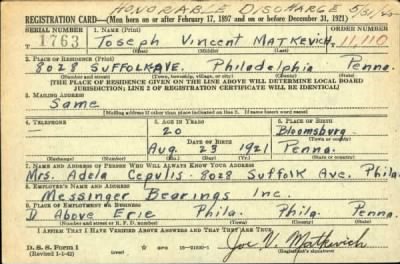 HONORABLE DISCHARGE 5/31/45
REGISTRATION CARD—(Men born on or after February 17, 1897 and on or before December 31, 1921)
SERIAL NUMBER 1. NAME (Print) ORDER NUMBER
T 1763 Joseph Vincent Matkevich 11,110
(First) (Middle) (Last)
2. PLACE OF RESIDENCE (Print)
8028 SUFFOLK AVE. Philadelphia Penna.
(Number and street) (Town, township, village, or city) (County) (State)
[THE PLACE OF RESIDENCE GIVEN ON THE LINE ABOVE WILL DETERMINE LOCAL BOARD
JURISDICTION; LINE 2 OF REGISTRATION CERTIFICATE WILL BE IDENTICAL]
3. MAILING ADDRESS
Same
[Mailing address if other than place indicated on line 2. If same insert word same]
4. TELEPHONE 5. AGE IN YEARS 6. PLACE OF BIRTH
— 20 Bloomsburg
DATE OF BIRTH (Town or county)
Aug 23 1921 Penna.
(Exchange) (Number) (Mo.) (Day) (Yr.) (State or country)
7. NAME AND ADDRESS OF PERSON WHO WILL ALWAYS KNOW YOUR ADDRESS
Mrs. Adela Cepulis - 8028 Suffolk Ave. Phila.
8. EMPLOYER'S NAME AND ADDRESS
Messinger Bearings Inc.
9. PLACE OF EMPLOYMENT OR BUSINESS
D Above Erie Phila. Phila. Penna.
(Number and street or R. F. D. number) (Town) (County) (State)
I AFFIRM THAT I HAVE VERIFIED ABOVE ANSWERS AND THAT THEY ARE TRUE.
D. S. S. Form 1
(Revised 1-1-42) (over) Joe V. Matkevich